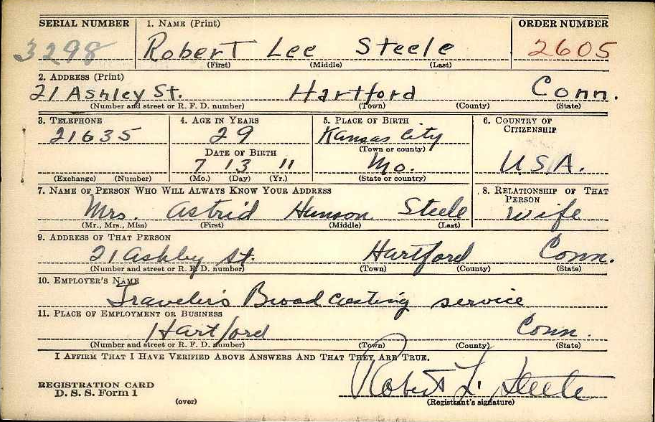 SERIAL NUMBER 1. NAME (Print) ORDER NUMBER
3298 Robert Lee Steele 2605
(First) (Middle) (Last)
2. ADDRESS (Print)
21 Ashley St. Hartford Conn.
(Number and street or R. F. D. number) (Town) (County) (State)
3. TELEPHONE 4. AGE IN YEARS 5. PLACE OF BIRTH 6. COUNTRY OF CITIZENSHIP
21635 29 Kansas City
(Town or county)
DATE OF BIRTH
7 13 11 Mo. USA.
(Exchange) (Number) (Mo.) (Day) (Yr.) (State or country)
7. NAME OF PERSON WHO WILL ALWAYS KNOW YOUR ADDRESS 8. RELATIONSHIP OF THAT PERSON
Mrs. Astrid Hanson Steele Wife
(Mr., Mrs., Miss) (First) (Middle) (Last)
9. ADDRESS OF THAT PERSON
21 Ashley St. Hartford Conn.
(Number and street or R. F. D. number) (Town) (County) (State)
10. EMPLOYER'S NAME
Travelers Broadcasting service
11. PLACE OF EMPLOYMENT OR BUSINESS
Hartford Conn.
(Number and street or R. F. D. number) (Town) (County) (State)
I AFFIRM THAT I HAVE VERIFIED ABOVE ANSWERS AND THAT THEY ARE TRUE.
REGISTRATION CARD Robert L. Steele
D. S. S. Form 1
(over) (Registrant's signature)